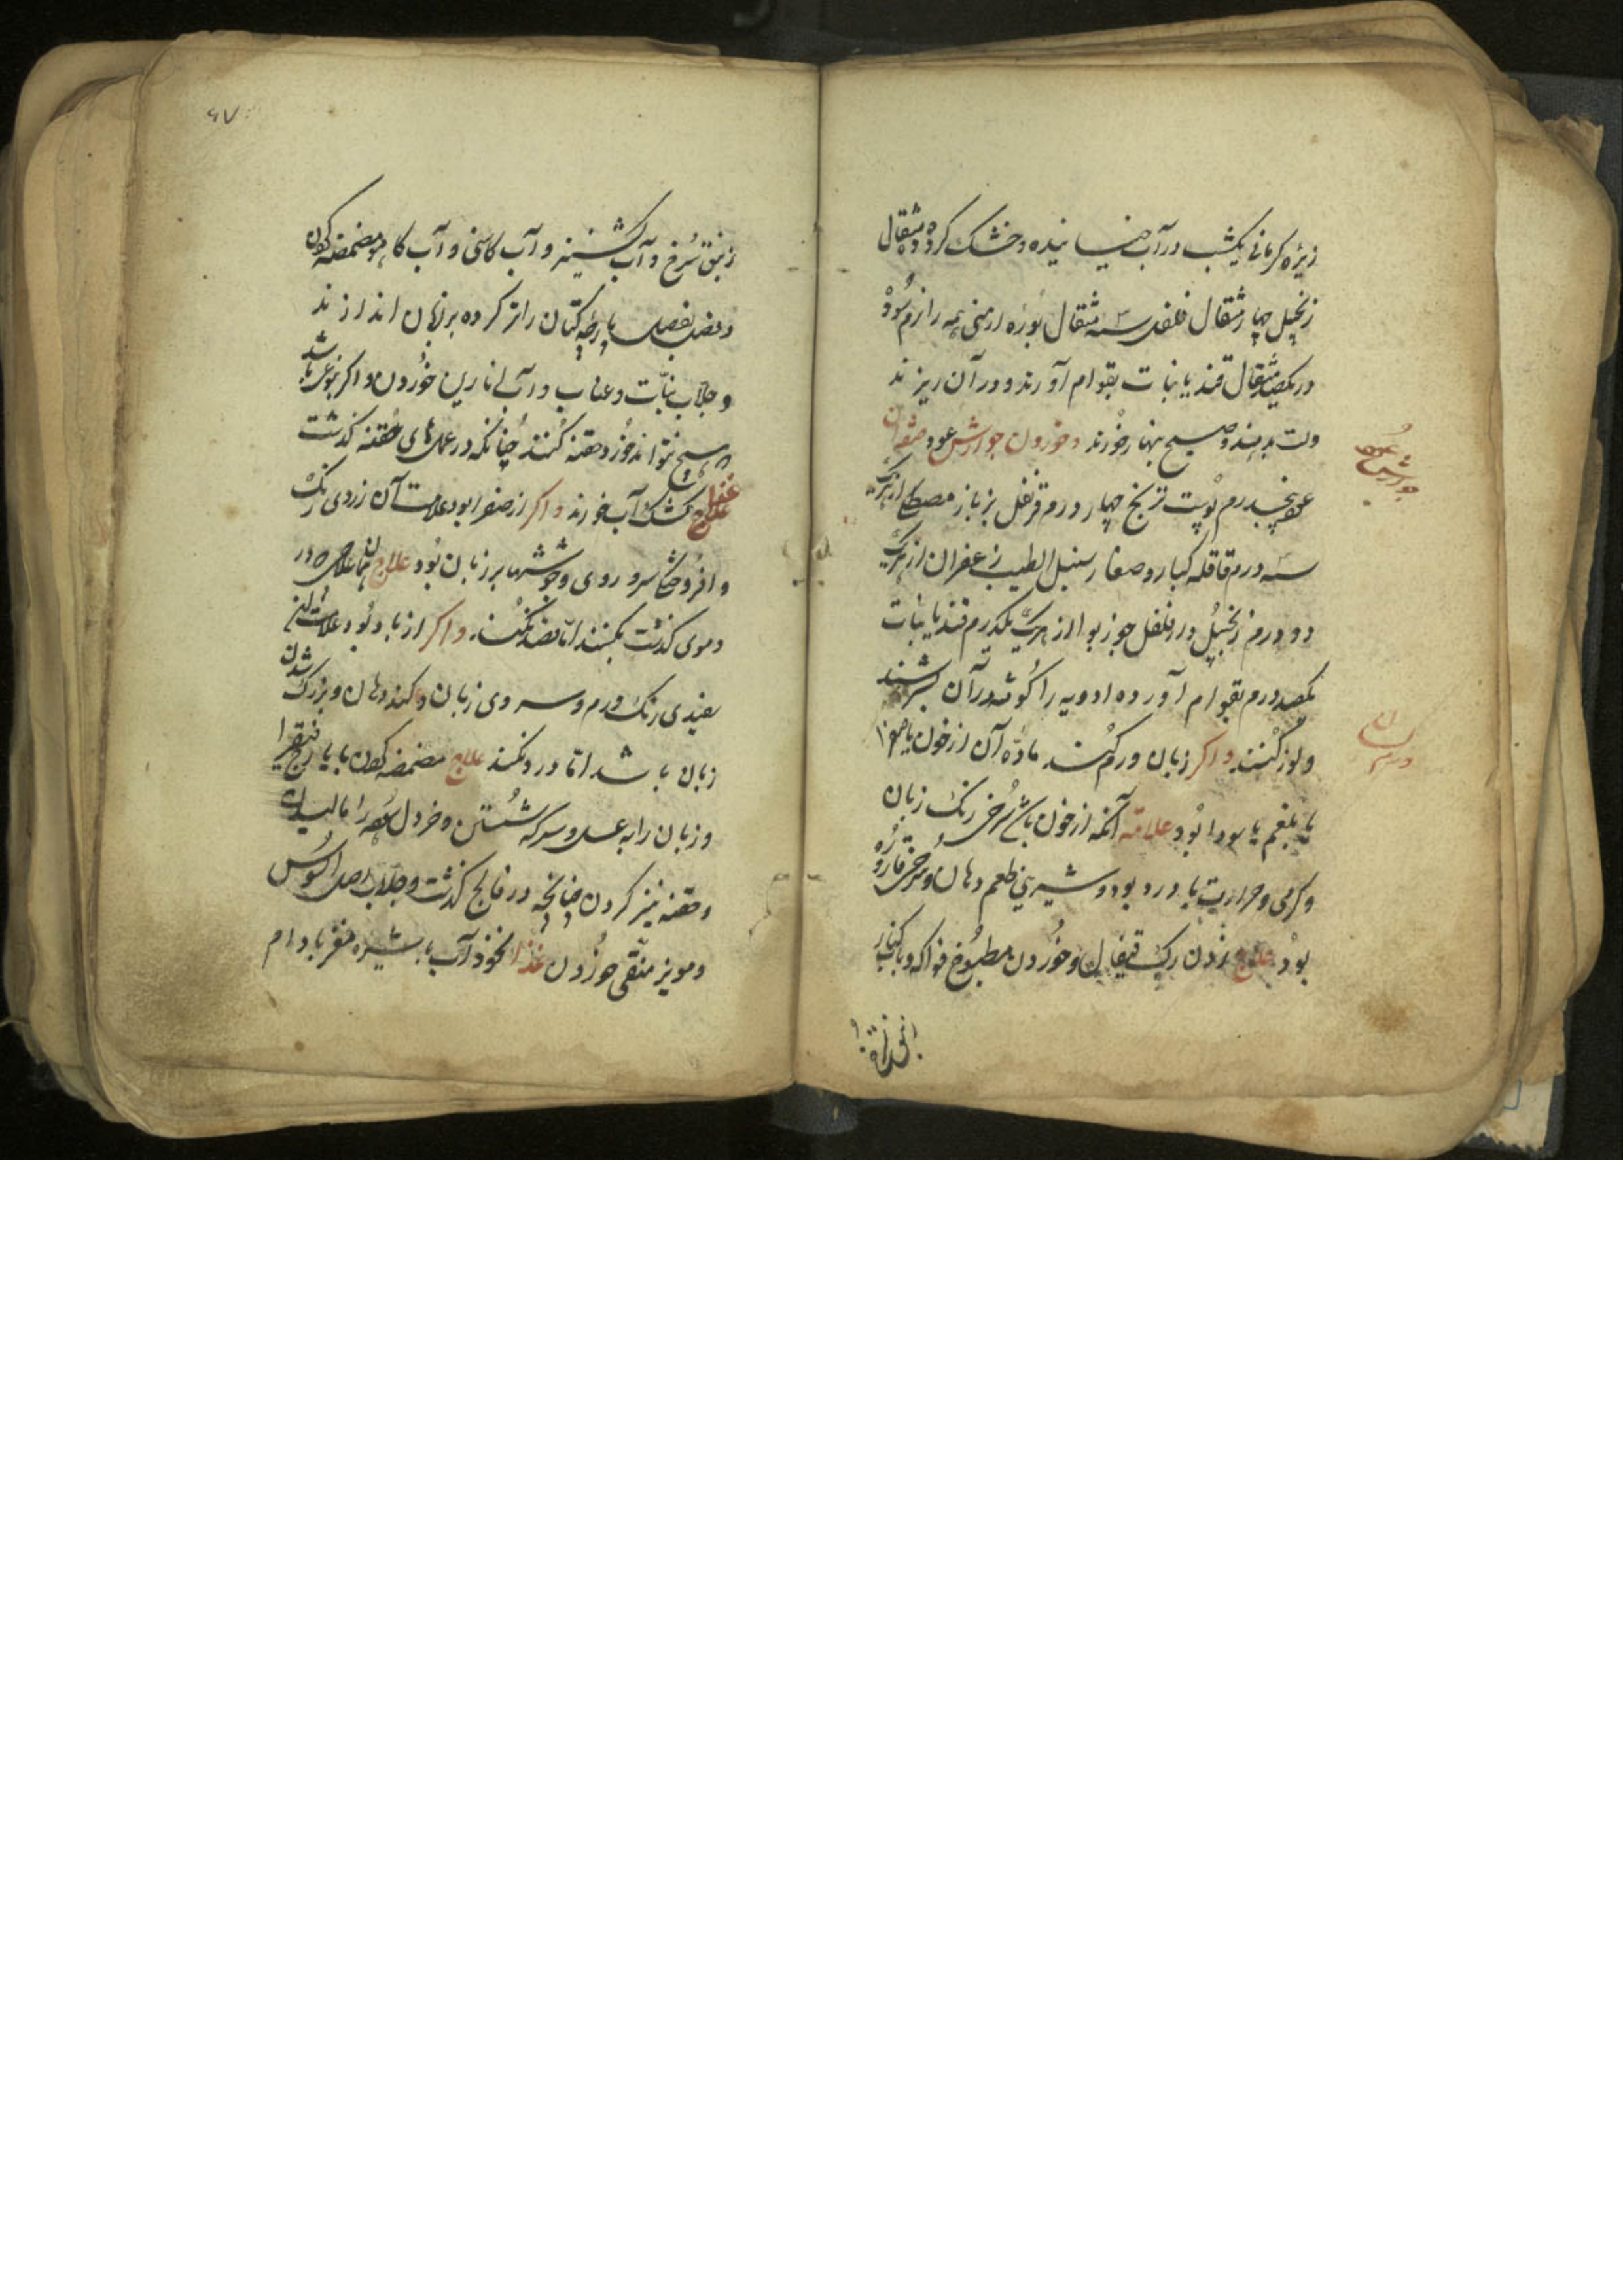 زیرهٔ کرمانی یکشب در آب خیسانیده و خشک کرده ده مثقال
زنجبیل چهار مثقال فلفل سه مثقال بوره ارمنی همه را نرم سوده
در یکصد مثقال قند یا نبات بقوام آورند و در آن ریزند
و لت بدهند و صبح نهار خورند و خوردن جوارش عود صفة آن
عود پنجدرم پوست ترنج چهار درم قرنفل بزباز مصطکی از هریک
سه درم قاقله کبار و صغار سنبل الطیب زعفران از هریک
دو درم زنجبیل دارفلفل جوز بوا از هریک یکدرم قند یا نبات
یکصد درم بقوام آورده ادویه را کوفته در آن بسرشند
و لوز کنند و اکر زبان ورم کند ماده آن از خون یا صفرا
یا بلغم یا سودا بود علامة آنکه از خون باشد سرخی رنک زبان
و کرمی و حرارت با درد بود و شیرینی طعم دهان و سرخی قاروره
بود علاج زدن رک قیفال و خوردن مطبوخ فواکه و باب کنار
جوارش عود
ورم زبان
۶۷
زنبق سرخ و آب کشنیز و آب کاسنی و آب کاهو مضمضه کردن
و پارچه کتان را تر کرده بر زبان اندازند
و جلاب نبات و عناب و آب انارین خوردن و اکر بنوعی باشد
که هیچ نتواند خورد حقنه کنند چنانکه در عملهای حقنه کذشت
غذا کشک آب خورند و اکر از صفرا بود علامت آن زردی رنک
و افروختکی سر و روی و جوششها بر زبان بود علاج همان علاجی که در
دموی کذشت بکنند اما فصد نکنند و اکر از باد بود علامت آن
سفیدی رنک ورم و سردی زبان و کند دهان و بزرک شدن
زبان باشد اما درد نکند علاج مضمضه کردن با یارج فیقرا
و زبان را به عسل و سرکه شستن و خردل سوده را مالیدن
و حقنه نیز کردن چنانچه در فالج کذشت و جلاب اصل السوس
و مویز منقی خوردن غذا نخود آب با شیره مغز بادام